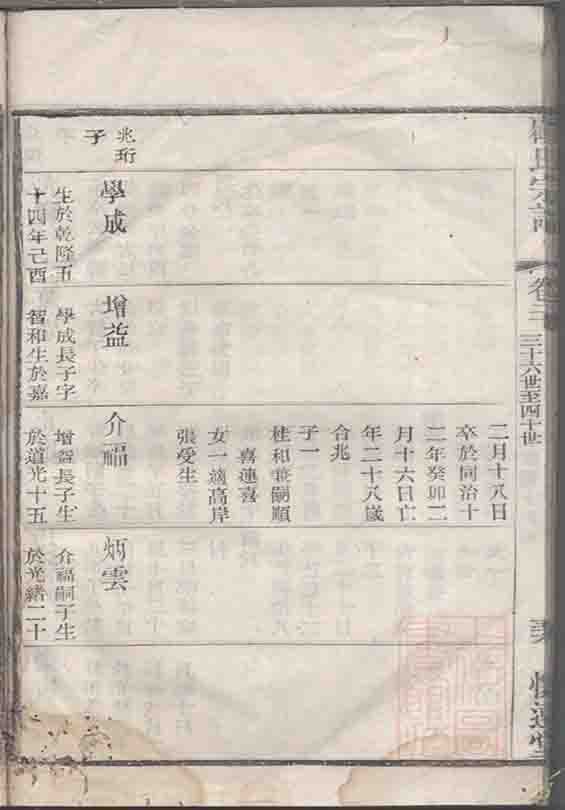 卷二
三十六世至四十世
兆珩
子
學成
生於乾隆五
十四年己酉
增益
學成長子字
智和生於嘉
二月十八日
卒於同治十
二年癸卯二
月十六日亡
年二十八歲
合兆
子一
桂和兼嗣順
喜連喜
女一適高岸
張受生
介福
增益長子生
於道光十五
炳雲
介福嗣子生
於光緒二十